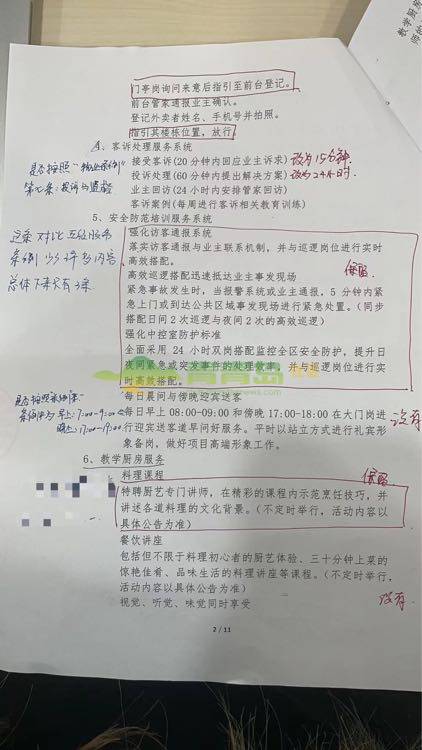 教学厨房
门亭岗询问来意后指引至前台登记。
前台管家通报业主确认。
登记外卖者姓名、手机号并拍照。
指引其楼栋位置，放行
4、客诉处理服务系统
接受客诉(20分钟内回应业主诉求) 改为15分钟.
投诉处理(60分钟内提出解决方案) 改为24小时.
业主回访(24小时内安排管家回访)
客诉案例(每周进行客诉相关教育训练)
是否按照"物业条例"
第七条：投诉与监督
5、安全防范培训服务系统
强化访客通报系统
落实访客通报与业主联系机制，并与巡逻岗位进行实时
高效搭配。 保留
高效巡逻搭配迅速抵达业主事发现场
紧急事故发生时，当报警系统或业主通报，5 分钟内紧
急上门或到达公共区域事发现场进行紧急处置。（同步
搭配日间2次巡逻与夜间2次的高效巡逻）
强化中控室防护标准
全面采用 24 小时双岗搭配监控全区安全防护，提升日
夜间紧急或突发事件的处理效率，并与巡逻岗位进行实
时高效搭配。
条例少了许多内容
总体下来只有3条
每日晨间与傍晚迎宾送客
每日早上 08:00-09:00 和傍晚 17:00-18:00 在大门岗进
行迎宾送客道早问好服务。平时以站立方式进行礼宾形
象备岗，做好项目高端形象工作。
没有
早上:7:00-9:00
晚上:17:00-19:00
6、教学厨房服务
料理课程 保留
特聘厨艺专门讲师，在精彩的课程内示范烹饪技巧，并
讲述各道料理的文化背景。（不定时举行，活动内容以
具体公告为准）
餐饮讲座
包括但不限于料理初心者的厨艺体验、三十分钟上菜的
惊艳佳肴、品味生活的料理讲座等课程。（不定时举行，
活动内容以具体公告为准）
视觉、听觉、味觉同时享受 没有
2 / 11